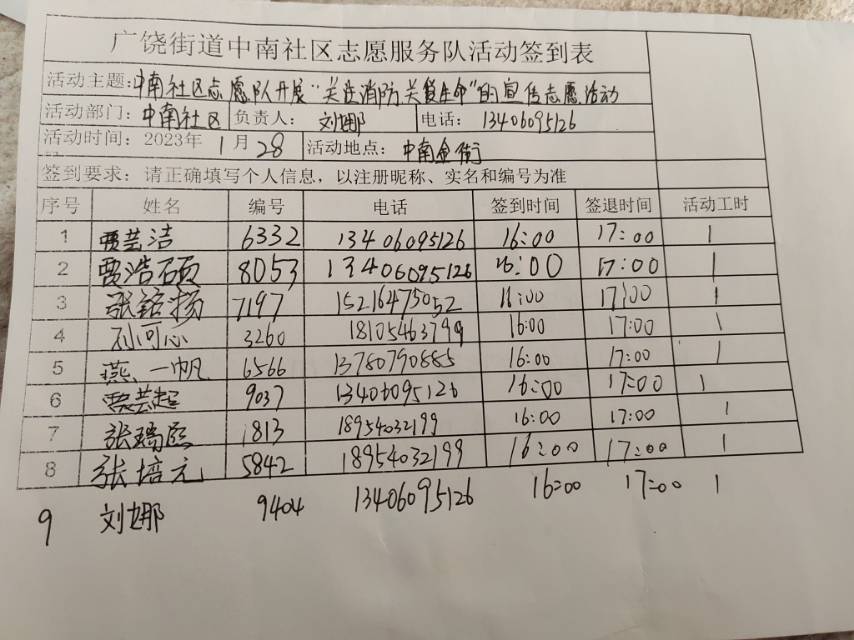 广饶街道中南社区志愿服务队活动签到表
活动主题:中南社区志愿队开展“关注消防、关爱生命”的宣传志愿活动
活动部门:中南社区 负责人:刘娜 电话:13406095126
活动时间:2023年1月28 活动地点:中南金街
签到要求:请正确填写个人信息,以注册昵称、实名和编号为准
序号 姓名 编号 电话 签到时间 签退时间 活动工时
1 贾芸洁 6332 13406095126 16:00 17:00 1
2 贾浩硕 8053 13406095126 16:00 17:00 1
3 张铭扬 7197 15216475052 16:00 17:00 1
4 孙可心 3260 18105463799 16:00 17:00 1
5 燕一帆 6566 13780790885 16:00 17:00 1
6 贾芸超 9037 13406095126 16:00 17:00 1
7 张瑞熙 1813 18954032199 16:00 17:00 1
8 张培元 5842 18954032199 16:00 17:00 1
9 刘娜 9404 13406095126 16:00 17:00 1